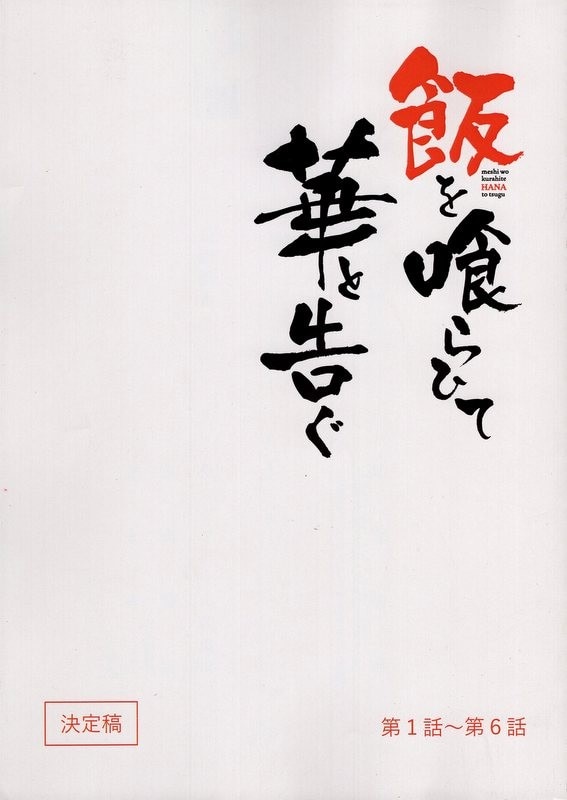 飯を喰らひて
meshi wo
kurahite
HANA
to tsugu
華と告ぐ
決定稿
第1話～第6話